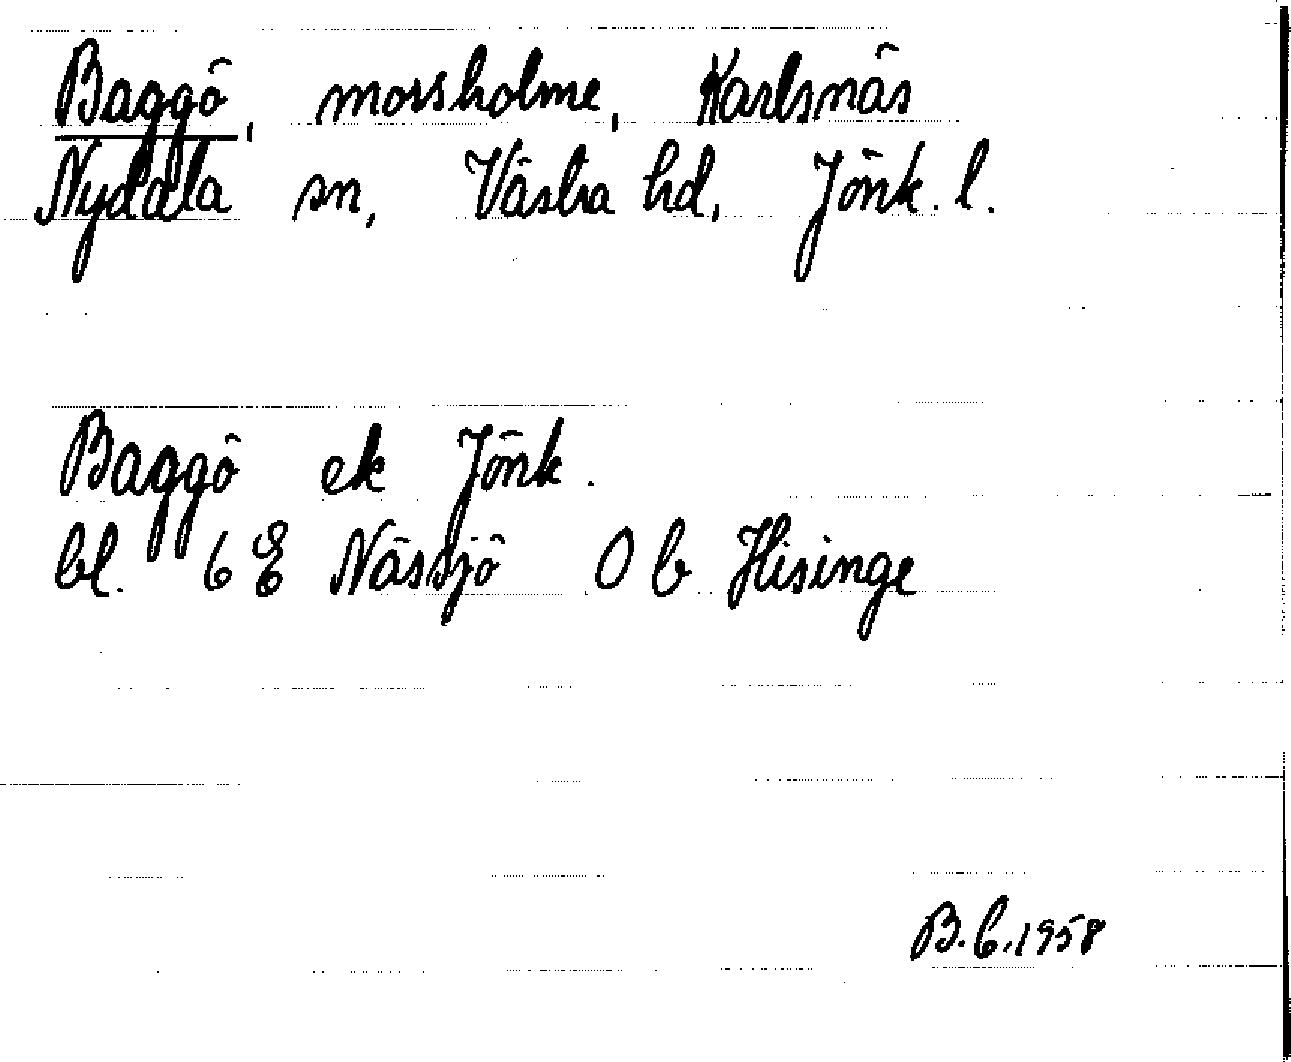 Baggö, mossholme, Karlsnäs
Nydala sn, Västra hd, Jönk. l.
Baggö ek Jönk.
bl. 6 E Nässjö 0 b Hisinge
B.C.1958